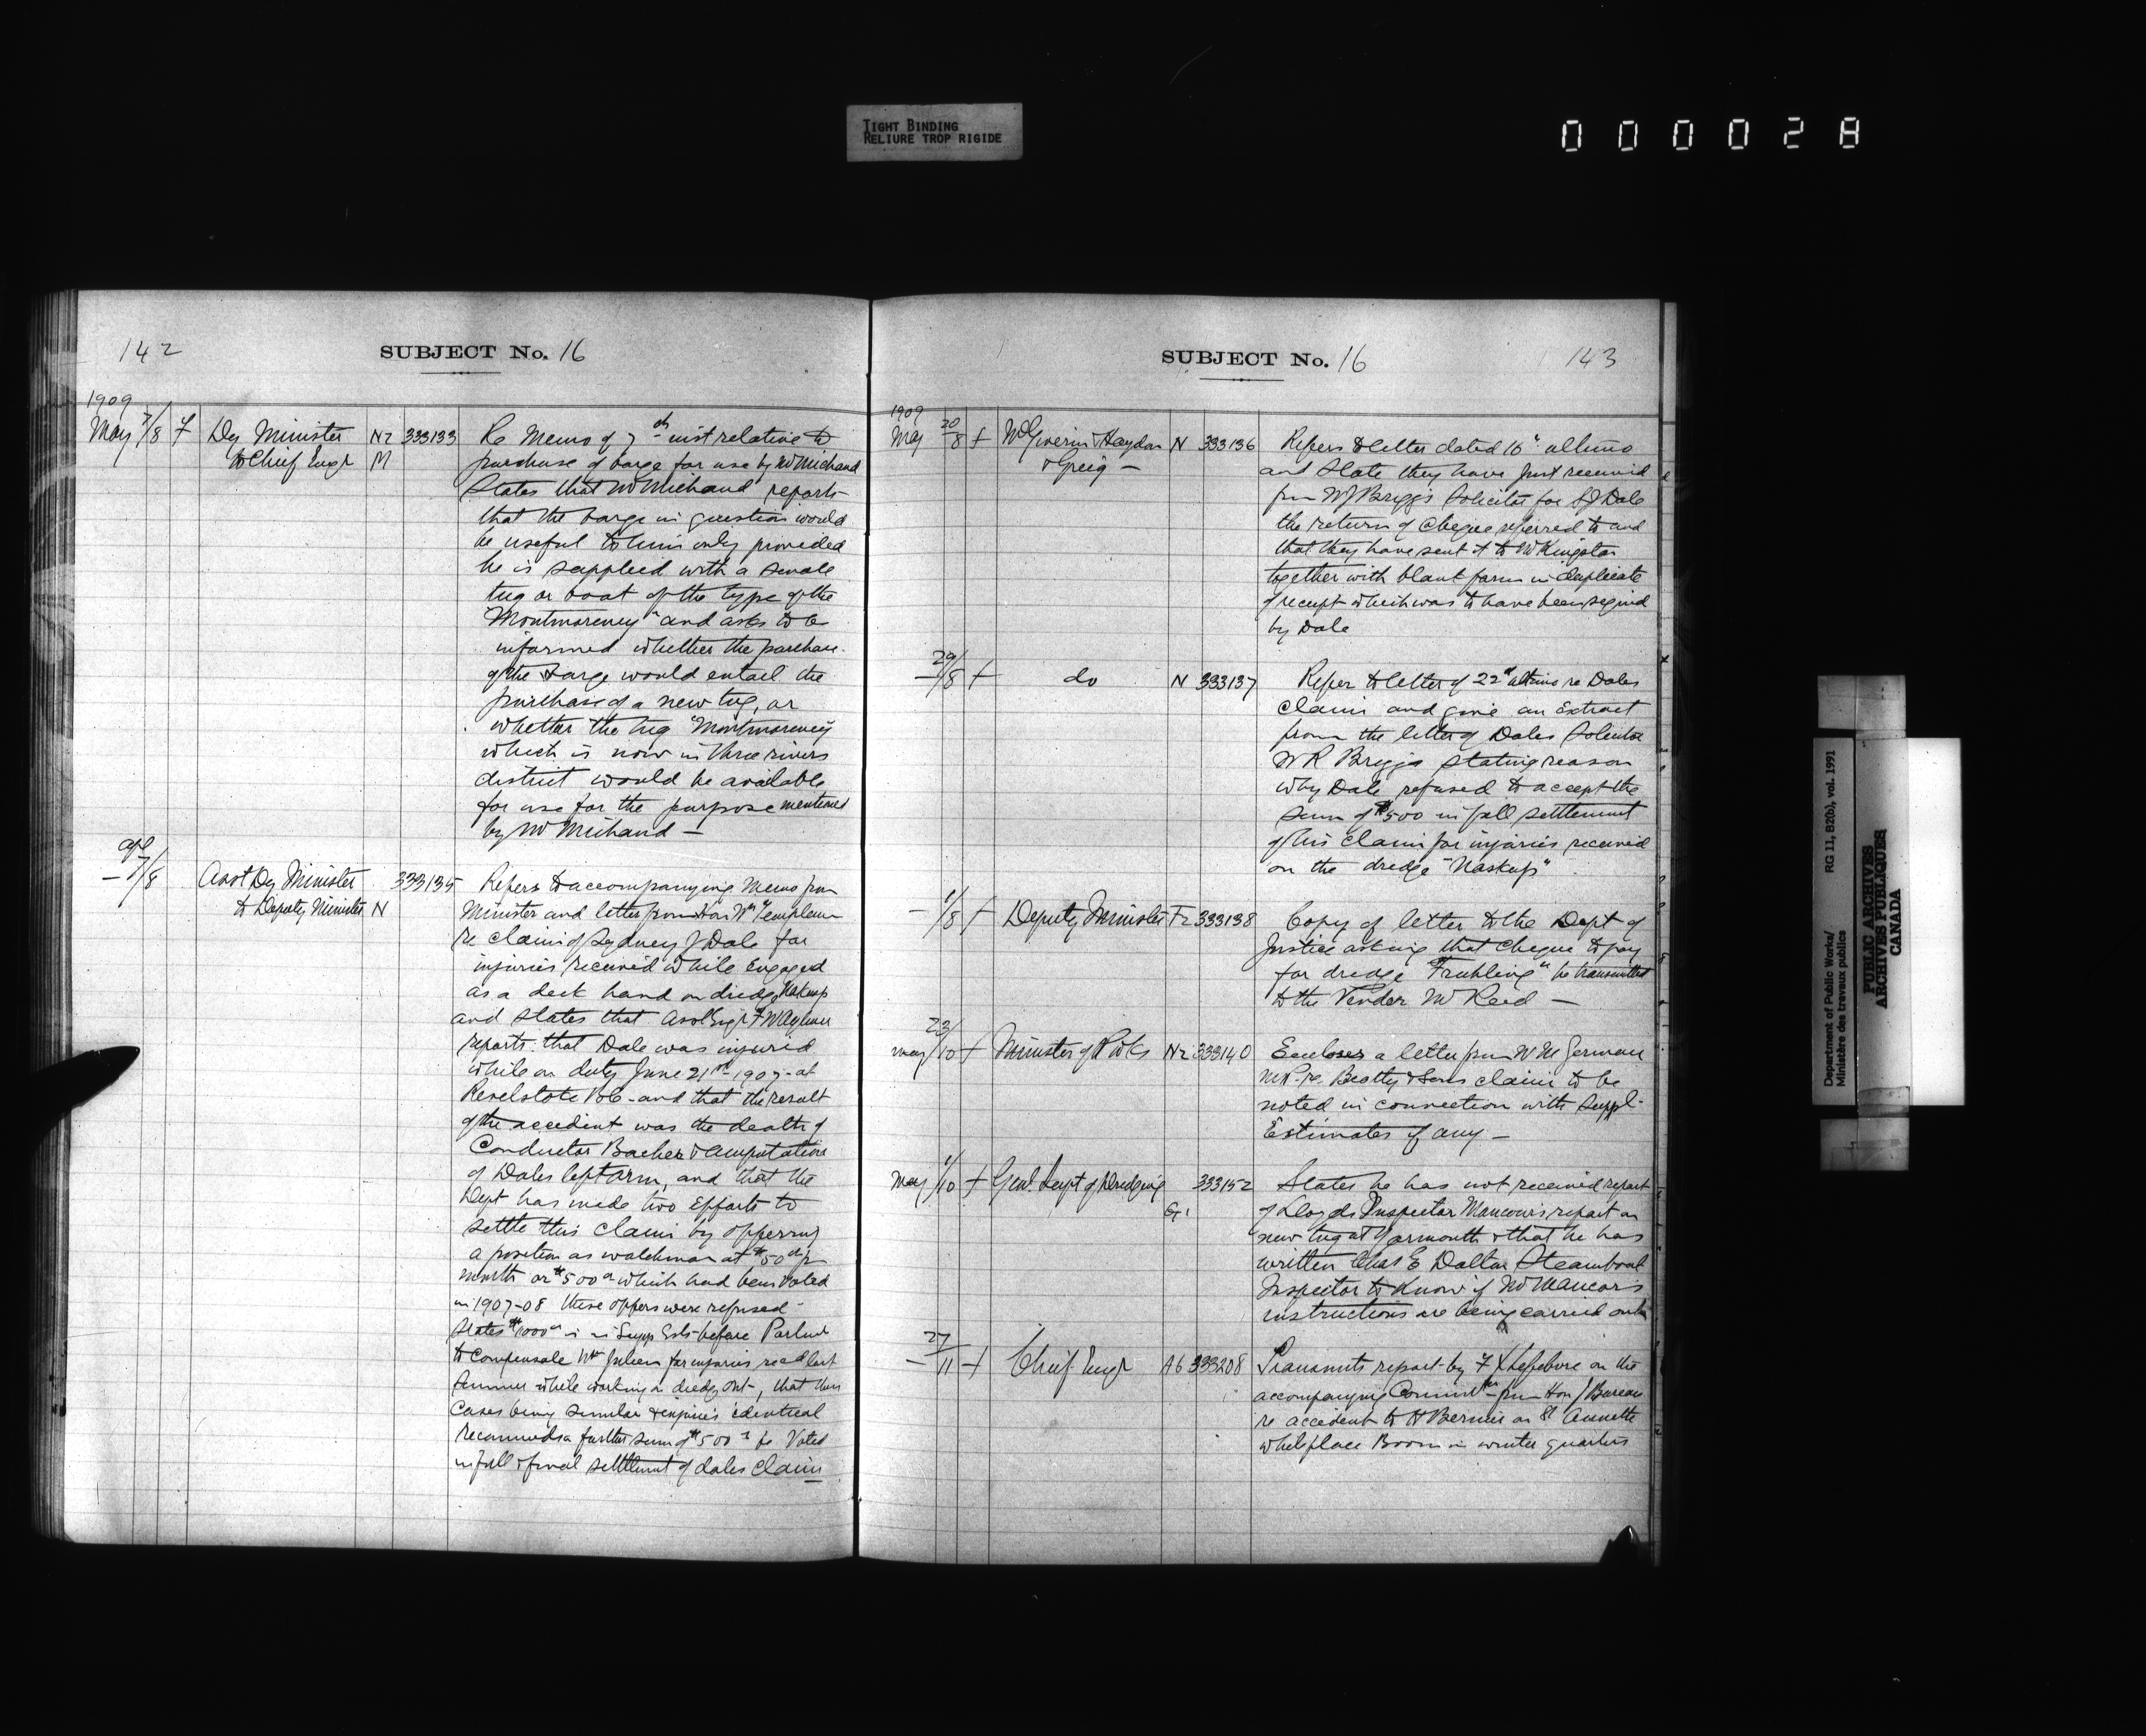 TIGHT BINDING
RELIURE TROP RIGIDE
000028
142
SUBJECT No. 16
1909
May 7/8 7 Dy Minister Nz 333133 Re Memo of 7th inst relative to
to Chief Engr M purchase of barge for use by Mr Michaud
States that Mr Michaud reports
that the barge in question would
be useful to him only provided
he is supplied with a small
tug or boat of the type of the
"Montmorency" and asks to be
informed whether the purchase
of the barge would entail the
purchase of a new tug, or
whether the tug "Montmorency
which is now in three rivers
district would be available
for use for the purpose mentioned
by Mr Michaud —
Apl
— 7/8 Asst Dy Minister 333135 Refers to accompanying Memo from
to Deputy Minister N Minister and letter from Hon Wm Templeman
re claim of Sydney J Dale for
injuries received while engaged
as a deck hand on dredge Nakusp
and states that Asst Engr F W Aylmer
reports that Dale was injured
while on duty June 21st 1907 at
Revelstoke B.C. and that the result
of the accident was the death of
Conductor Bacher & amputation
of Dales left arm, and that the
Dept has made two efforts to
settle this claim by offering
a position as watchman at $50 per
month or $500 which had been voted
in 1907-08 these offers were refused
States $1000 is in Supp Ests before Parlmt
to compensate Wm Julien for injuries recd last
summer while working on dredge Ont, that these
cases being similar & injuries identical
recommends a further sum of $500 be Voted
in full & final settlement of dales claim
SUBJECT No. 16
143
1909
May 20/8 + McGiverin Haydon N 333136 Refers to letter dated 16" ultimo
& Greig — and state they have just received
from W J Briggs Solicitor for S J Dale
the return of cheque referred to and
that they have sent it to Mr Kingston
together with blank form in duplicate
of receipt which was to have been signed
by Dale
— 29/8 + do N 333137 Refer to letter of 22d ultimo re Dales
claim and give an extract
from the letter of Dales Solicitor
W R Briggs stating reason
why Dale refused to accept the
sum of $500 in full settlement
of his claim for injuries received
on the dredge "Naskup"
— 1/8 + Deputy Minister Fz 333138 Copy of letter to the Dept of
Justice asking that cheque to pay
for dredge "Fruhling" be transmitted
to the Vendor Mr Reid —
May 23/10 + Minister of P Wks Nz 333140 Encloses a letter from W M German
M.P. re Beatty & Sons claim to be
noted in connection with suppl.
Estimates if any —
May 1/10 + Genl. Supt of Dredging 333152 States he has not received report
G. of Lloyds Inspector report on
new tug at Yarmouth & that he has
written Chas E Dalton Steamboat
Inspector to know if Mr
instructions are being carried out
— 27/11 + Chief Engr A6 333208 Transmits report by F X Lefebvre on the
accompanying from Hon J Bureau
re accident to H Bernier on St Annette
while place Boom in winter quarters
Department of Public Works/
Ministère des travaux publics
RG 11, B2(b), vol. 1991
PUBLIC ARCHIVES
ARCHIVES PUBLIQUES
CANADA